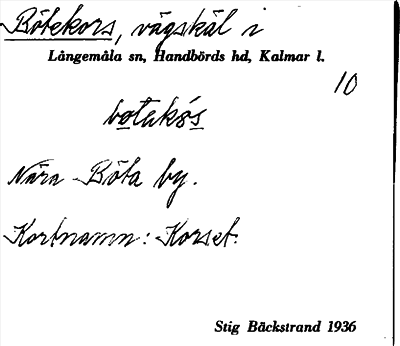 Bötekors, vägskäl i
Långemåla sn, Handbörds hd, Kalmar l.
10
Nära Böta by.
Kortnamn: Korset.
Stig Bäckstrand 1936